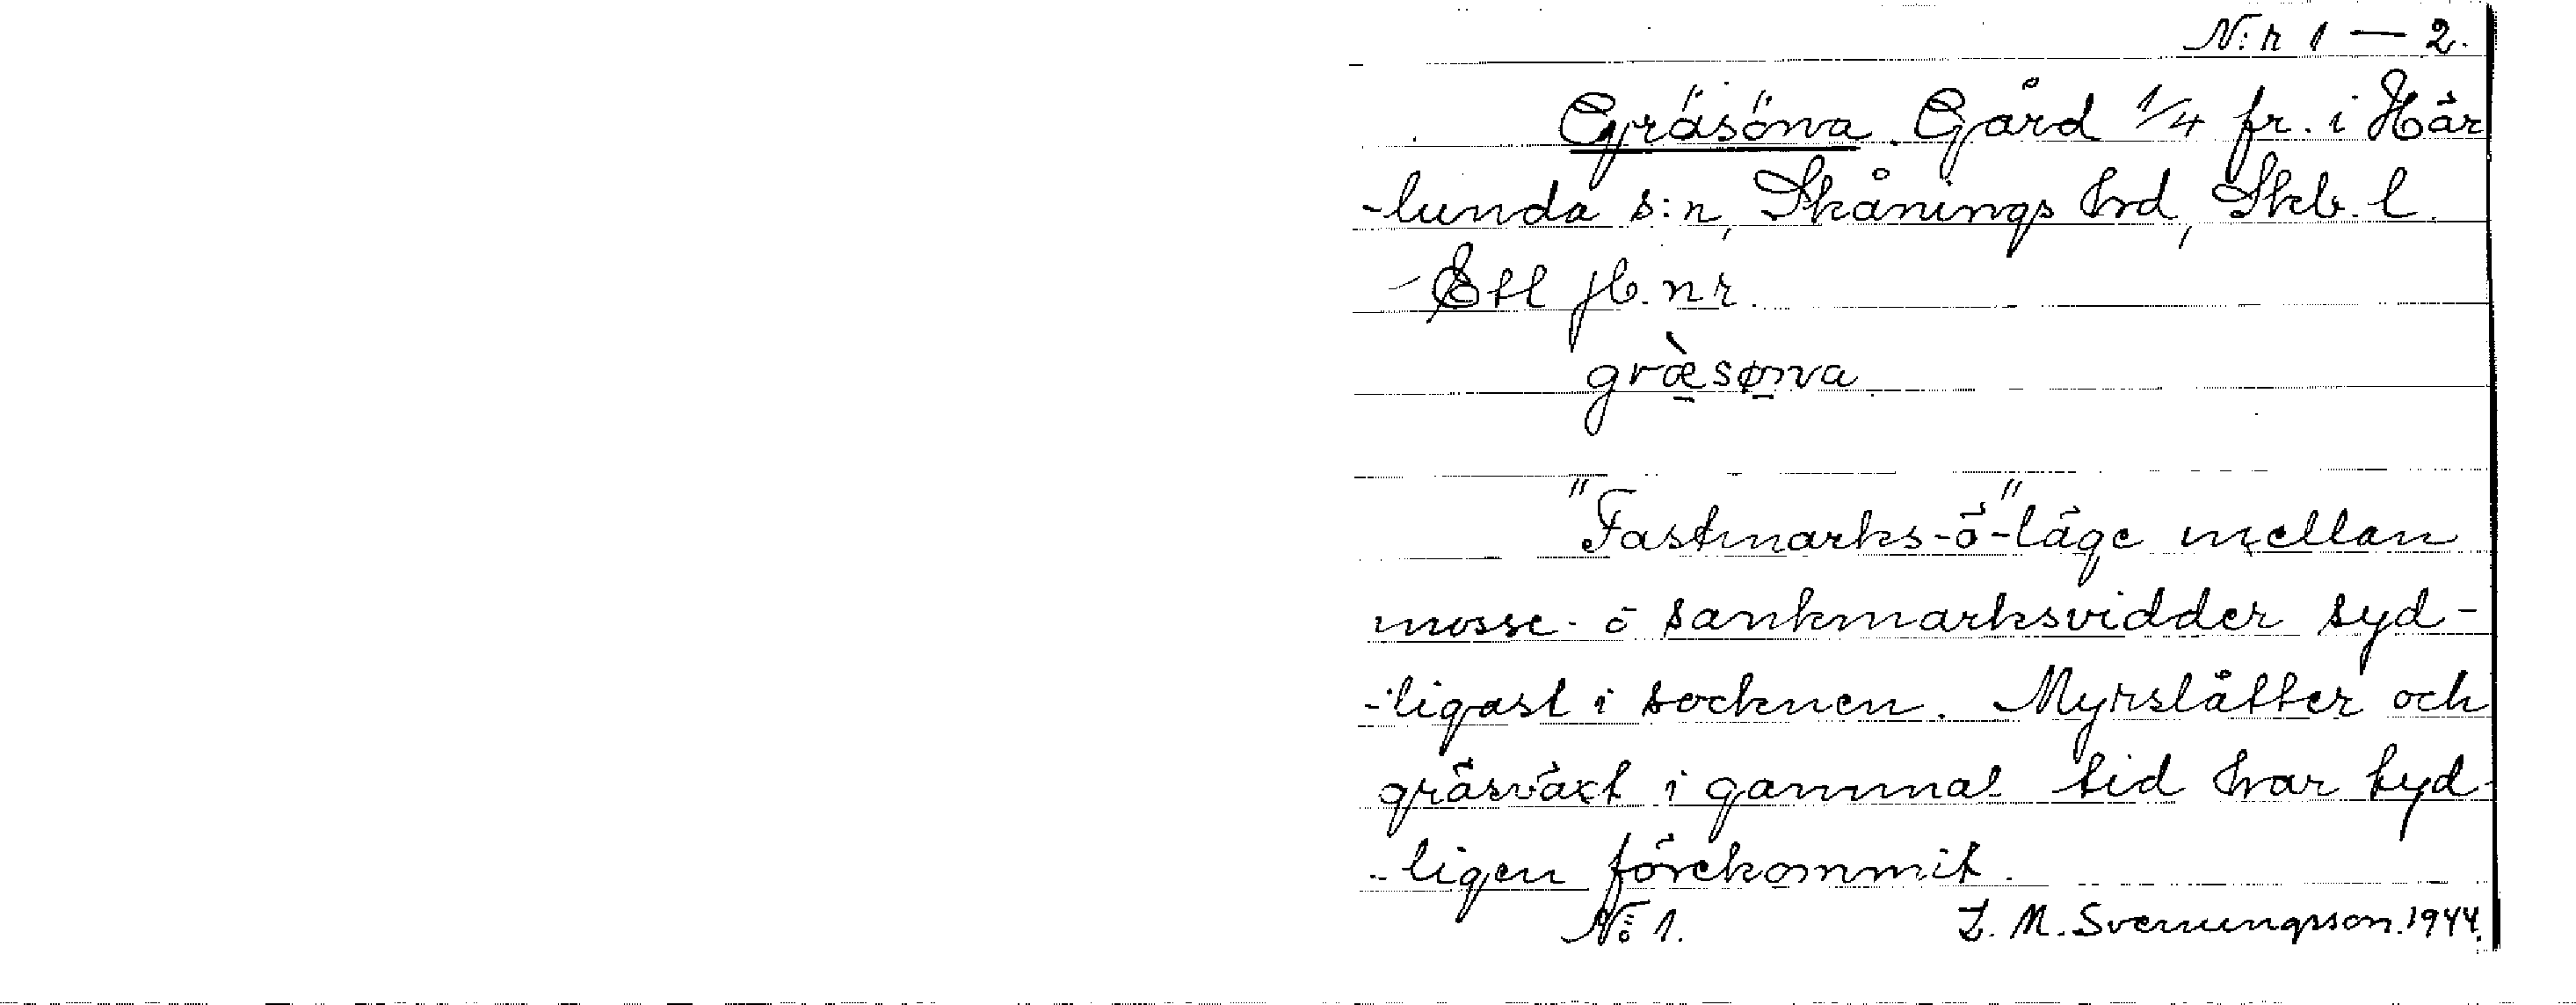 N:r 1 — 2.
Gräsöna. Gård 1/4 fr. i Här
-lunda s:n, Skånings hd, Skb. l.
- Ett jb. nr.
græ̀søna
"Fastmarks-ö"-läge mellan
mosse- o sankmarksvidder syd-
-ligast i socknen. Myrslåtter och
gräsväxt i gammal tid har tyd-
-ligen förekommit.
No 1. L. M. Svenungsson. 1944.